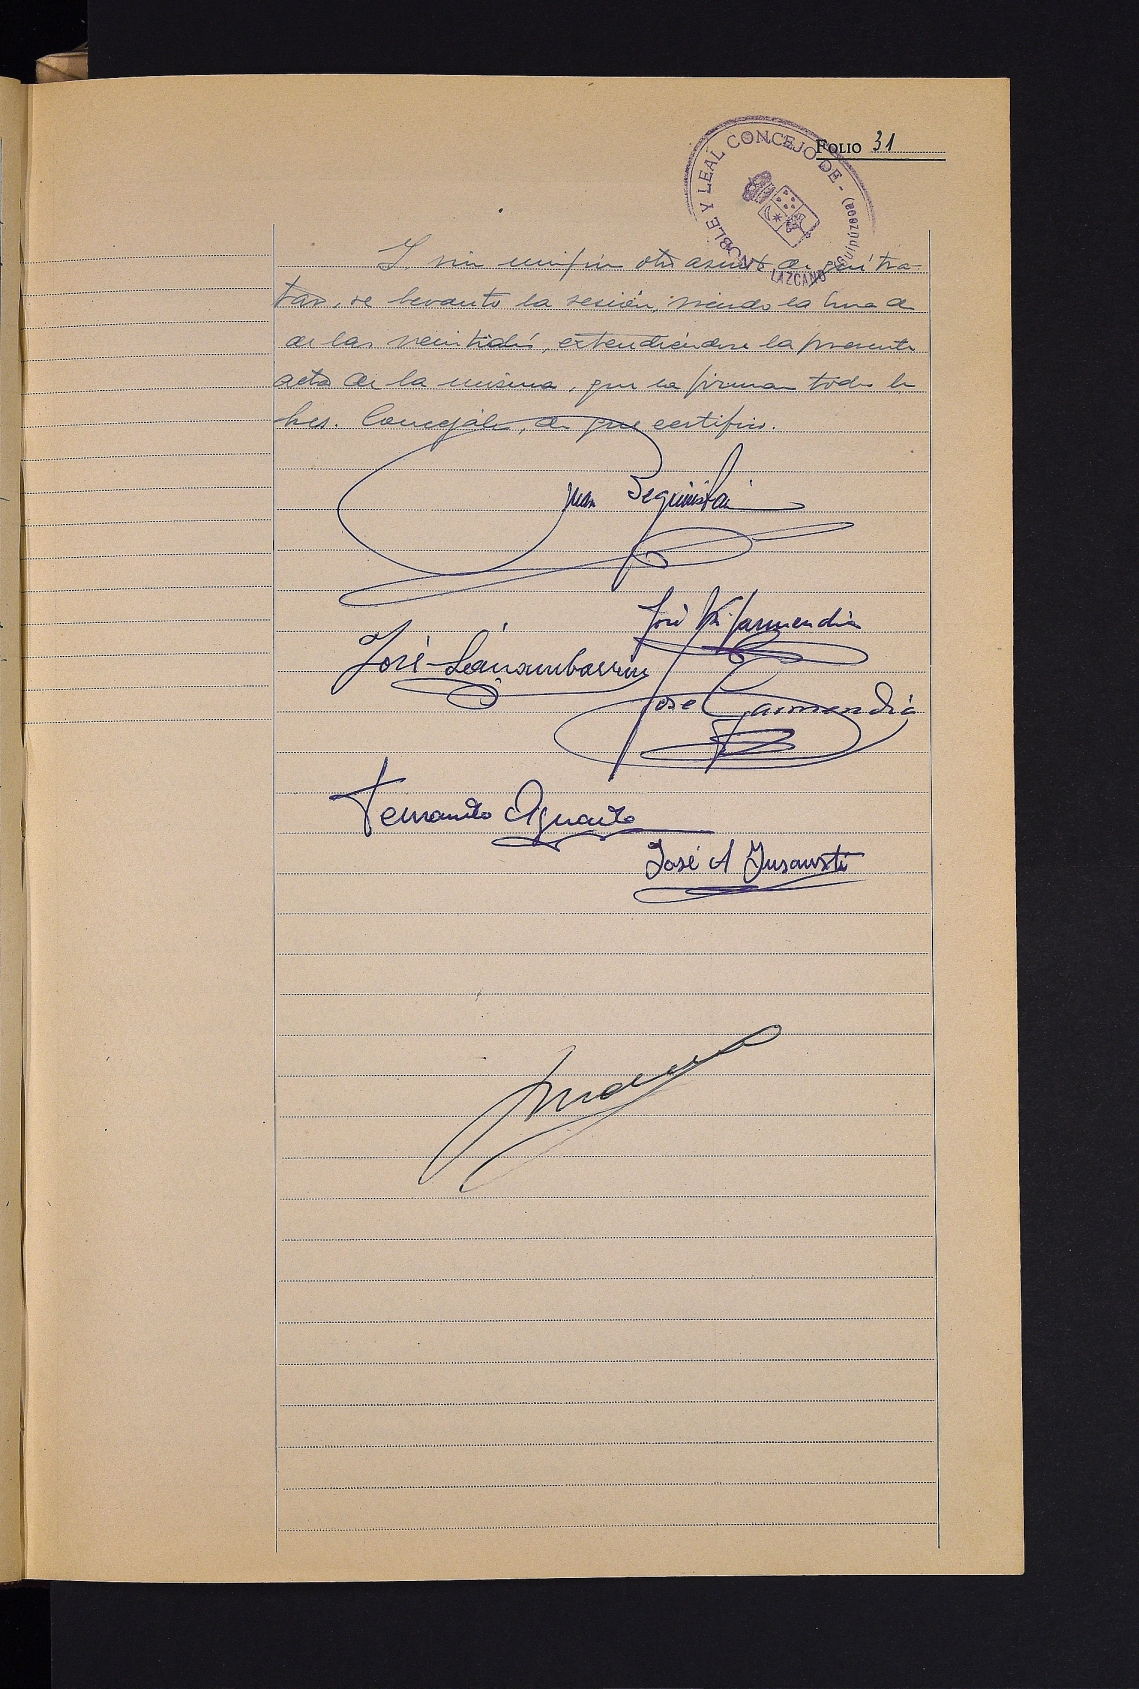 FOLIO 31
NOBLE Y LEAL CONCEJO DE - LAZCANO (Guipúzcoa)
Y sin ningún otro asunto de que tra-
tar, se levantó la sesión, siendo la hora de
de las veintidós, extendiéndose la presente
acta de la misma, que la firman todos los
Sres. Concejales, de que certifico.
Juan Beguiristain
José Garmendia
José
José Garmendia
Fernando Aguado
José A Insausti